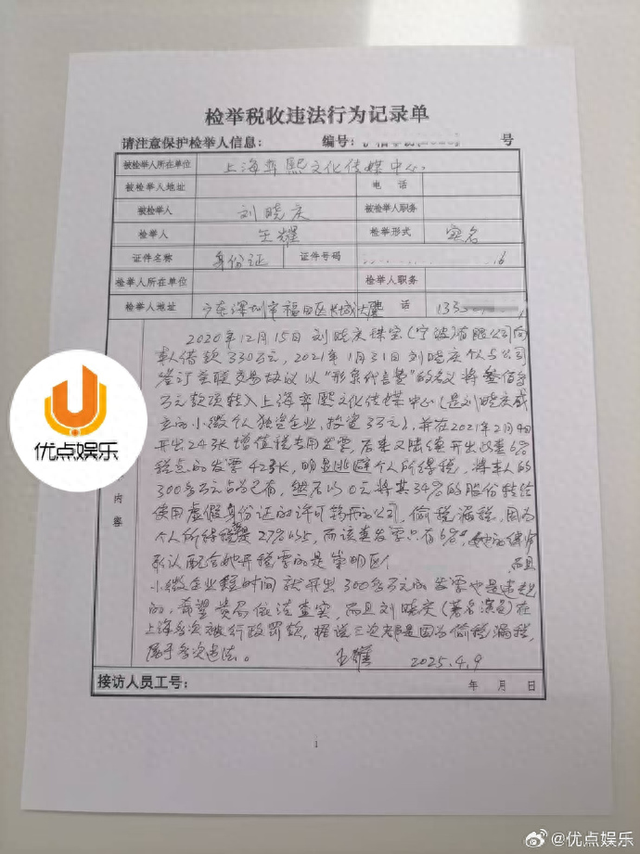 检举税收违法行为记录单
请注意保护检举人信息： 编号： 号
被检举人所在单位 上海弈熙文化传媒中心
被检举人地址 电 话
被检举人 刘晓庆 被检举人职务
检举人 王耀 检举形式 实名
证件名称 身份证 证件号码 6
检举人所在单位 检举人职务
检举人地址 广东深圳市福田区长城大厦 话 133
2020年12月15日刘晓庆珠宝(宁波)有限公司向
本人借款330万元，2021年1月31日刘晓庆个人与公司
签订关联交易协议以“形象代言费”的名义将叁佰多
万元款项转入上海弈熙文化传媒中心(是刘晓庆成
立的小微个人独资企业，投资3万元)，并在2021年2月4日
开出24张增值税专用发票，后来又陆续开出改套6%
税点的发票42张，明显逃避个人所得税，将本人的
300多万元占为己有，然后以0元将其34%的股份转给
使用虚假身份证的许可持有的公司，偷税漏税，因为
个人所得税是27%45，而该套发票只有6%，她的律师
承认配合她开税票的是崇明区个 而且
小微企业短时间就开出300多万元的发票也是违规
的，希望贵局依法查实，而且刘晓庆(著名演员)在
上海多次被行政罚款，据说三次都是因为偷税漏税，
属于多次违法。 王耀 2025.4.9
内容
接访人员工号： 年 月 日
1
优点娱乐
@优点娱乐